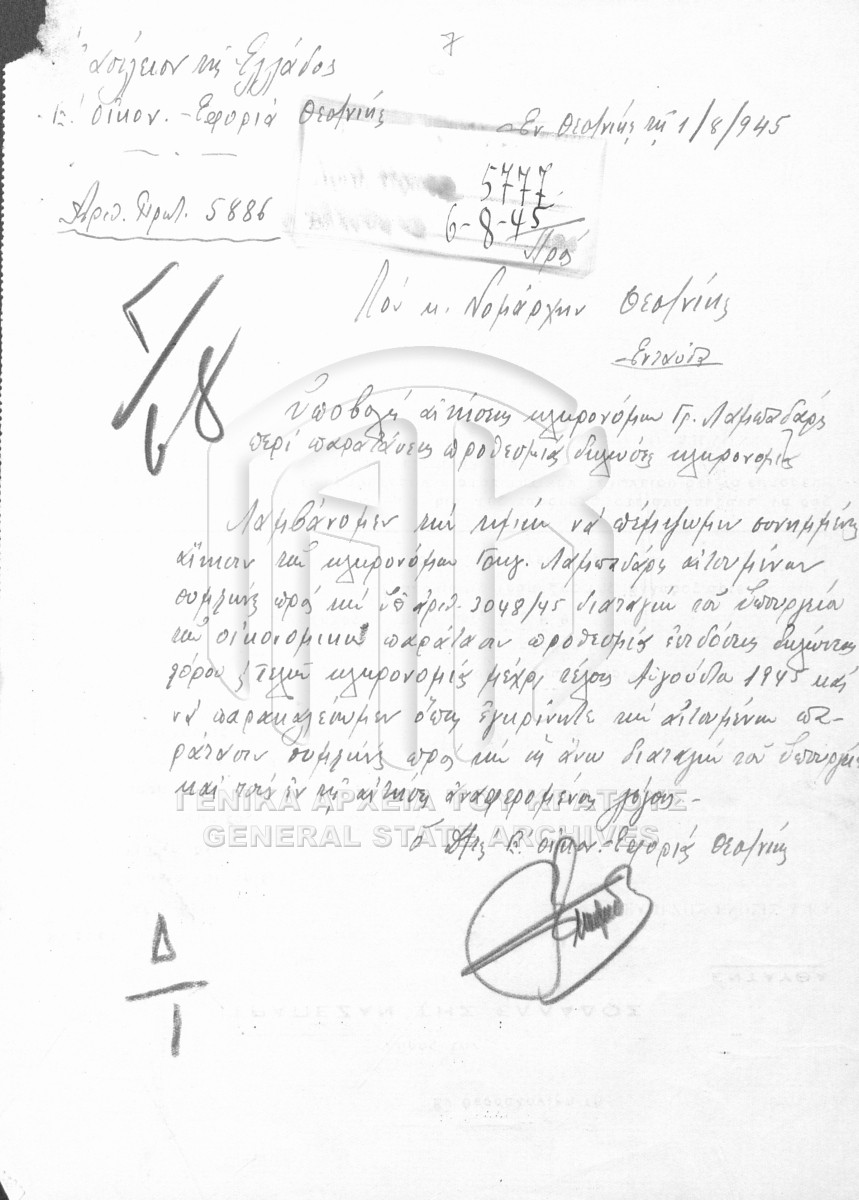 7
Βασίλειον τῆς Ἑλλάδος
Β' Οἰκον. Ἐφορία Θεσ/νίκης
Ἐν Θεσ/νίκῃ τῇ 1/8/945
Ἀριθ. Πρωτ. 5886
5777
6-8-45
Πρός
Τὸν κ. Νομάρχην Θεσ/νίκης
Ἐνταῦθα
Ὑποβολὴ αἰτήσεως κληρονόμων Γρ. Λαμπαδάρη
περὶ παρατάσεως προθεσμίας δηλώσεως κληρονομίας
Λαμβάνομεν τὴν τιμὴν νὰ πέμψωμεν συνημμένως
αἴτησιν τῶν κληρονόμων Γρηγ. Λαμπαδάρη αἰτουμένων
συμφώνως πρὸς τὴν ὑπ' ἀριθ. 3048/45 διαταγὴν τοῦ Ὑπουργείου
τῶν Οἰκονομικῶν παράτασιν προθεσμίας ἐπιδόσεως δηλώσεως
φόρου τελῶν κληρονομίας μέχρι τέλους Αὐγούστου 1945 καὶ
νὰ παρακαλέσωμεν ὅπως ἐγκρίνητε τὴν αἰτουμένην πα-
ράτασιν συμφώνως πρὸς τὴν ὡς ἄνω διαταγὴν τοῦ Ὑπουργείου
καὶ τοὺς ἐν τῇ αἰτήσει ἀναφερομένους λόγους.-
ΓΕΝΙΚΑ ΑΡΧΕΙΑ ΤΟΥ ΚΡΑΤΟΥΣ
GENERAL STATE ARCHIVES
Ὁ Δ/τής Β' Οἰκον. Ἐφορίας Θεσ/νίκης
Δ
1